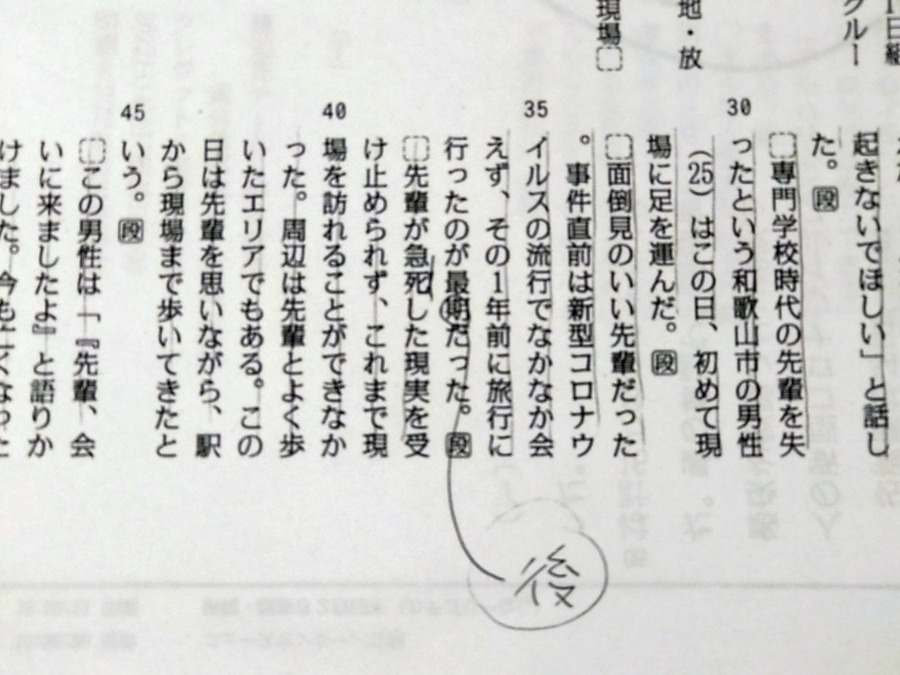 グルー
地・放
現場
起きないでほしい」と話し
た。段
専門学校時代の先輩を失
30
ったという和歌山市の男性
(25)はこの日、初めて現
場に足を運んだ。段
面倒見のいい先輩だった
。事件直前は新型コロナウ
35
イルスの流行でなかなか会
えず、その1年前に旅行に
行ったのが最期だった。段
先輩が急死した現実を受
け止められず、これまで現
40
場を訪れることができなか
った。周辺は先輩とよく歩
いたエリアでもある。この
日は先輩を思いながら、駅
から現場まで歩いてきたと
45
いう。段
この男性は「『先輩、会
いに来ましたよ』と語りか
けました。今も亡くなった
後